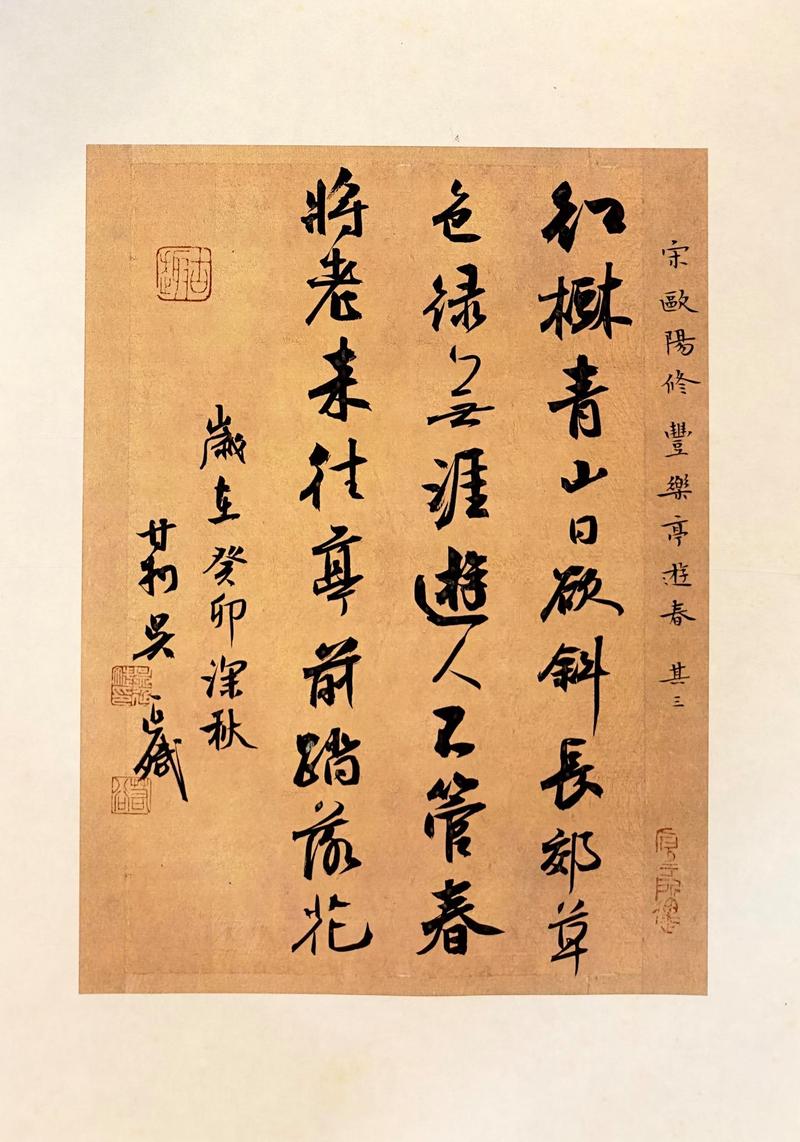 宋歐陽修豐樂亭遊春 其三
紅樹青山日欲斜長郊草
色綠無涯遊人不管春
將老來往亭前踏落花
歲在癸卯深秋
吴
古趣